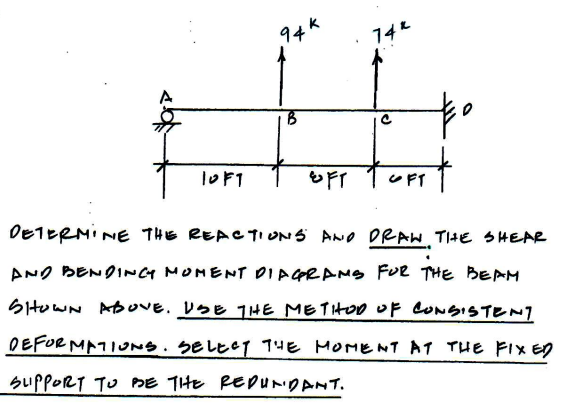 94K 74K
A B C D
10FT 8FT 6FT
DETERMINE THE REACTIONS AND DRAW THE SHEAR
AND BENDING MOMENT DIAGRAMS FOR THE BEAM
SHOWN ABOVE. USE THE METHOD OF CONSISTENT
DEFORMATIONS. SELECT THE MOMENT AT THE FIXED
SUPPORT TO BE THE REDUNDANT.